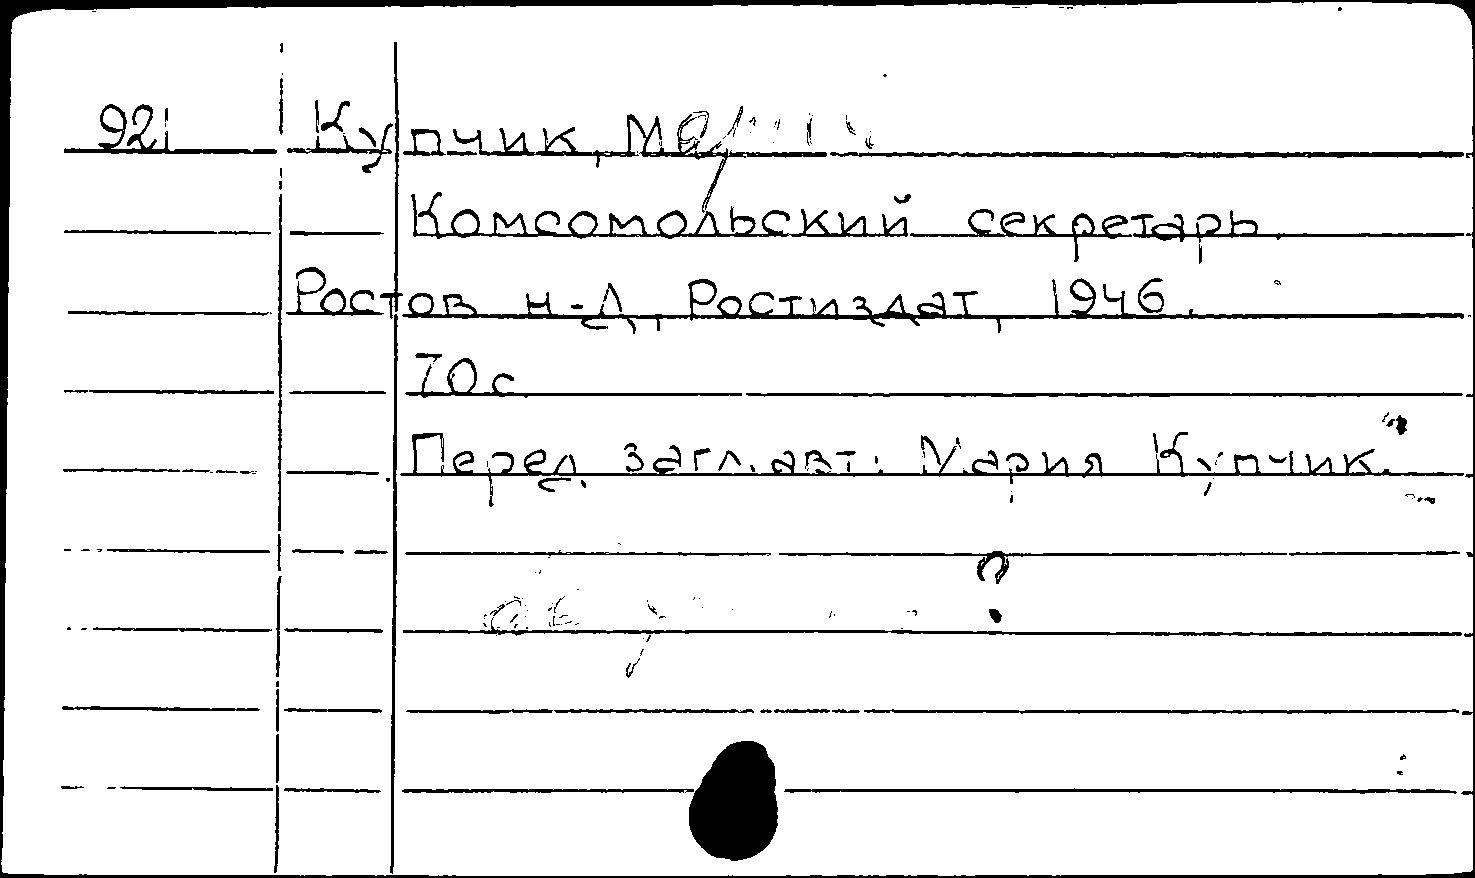 921 Купчик, Мария
Комсомольский секретарь.
Ростов н-Д, Ростиздат, 1946.
70 с
Перед загл. авт: Мария Купчик.
?